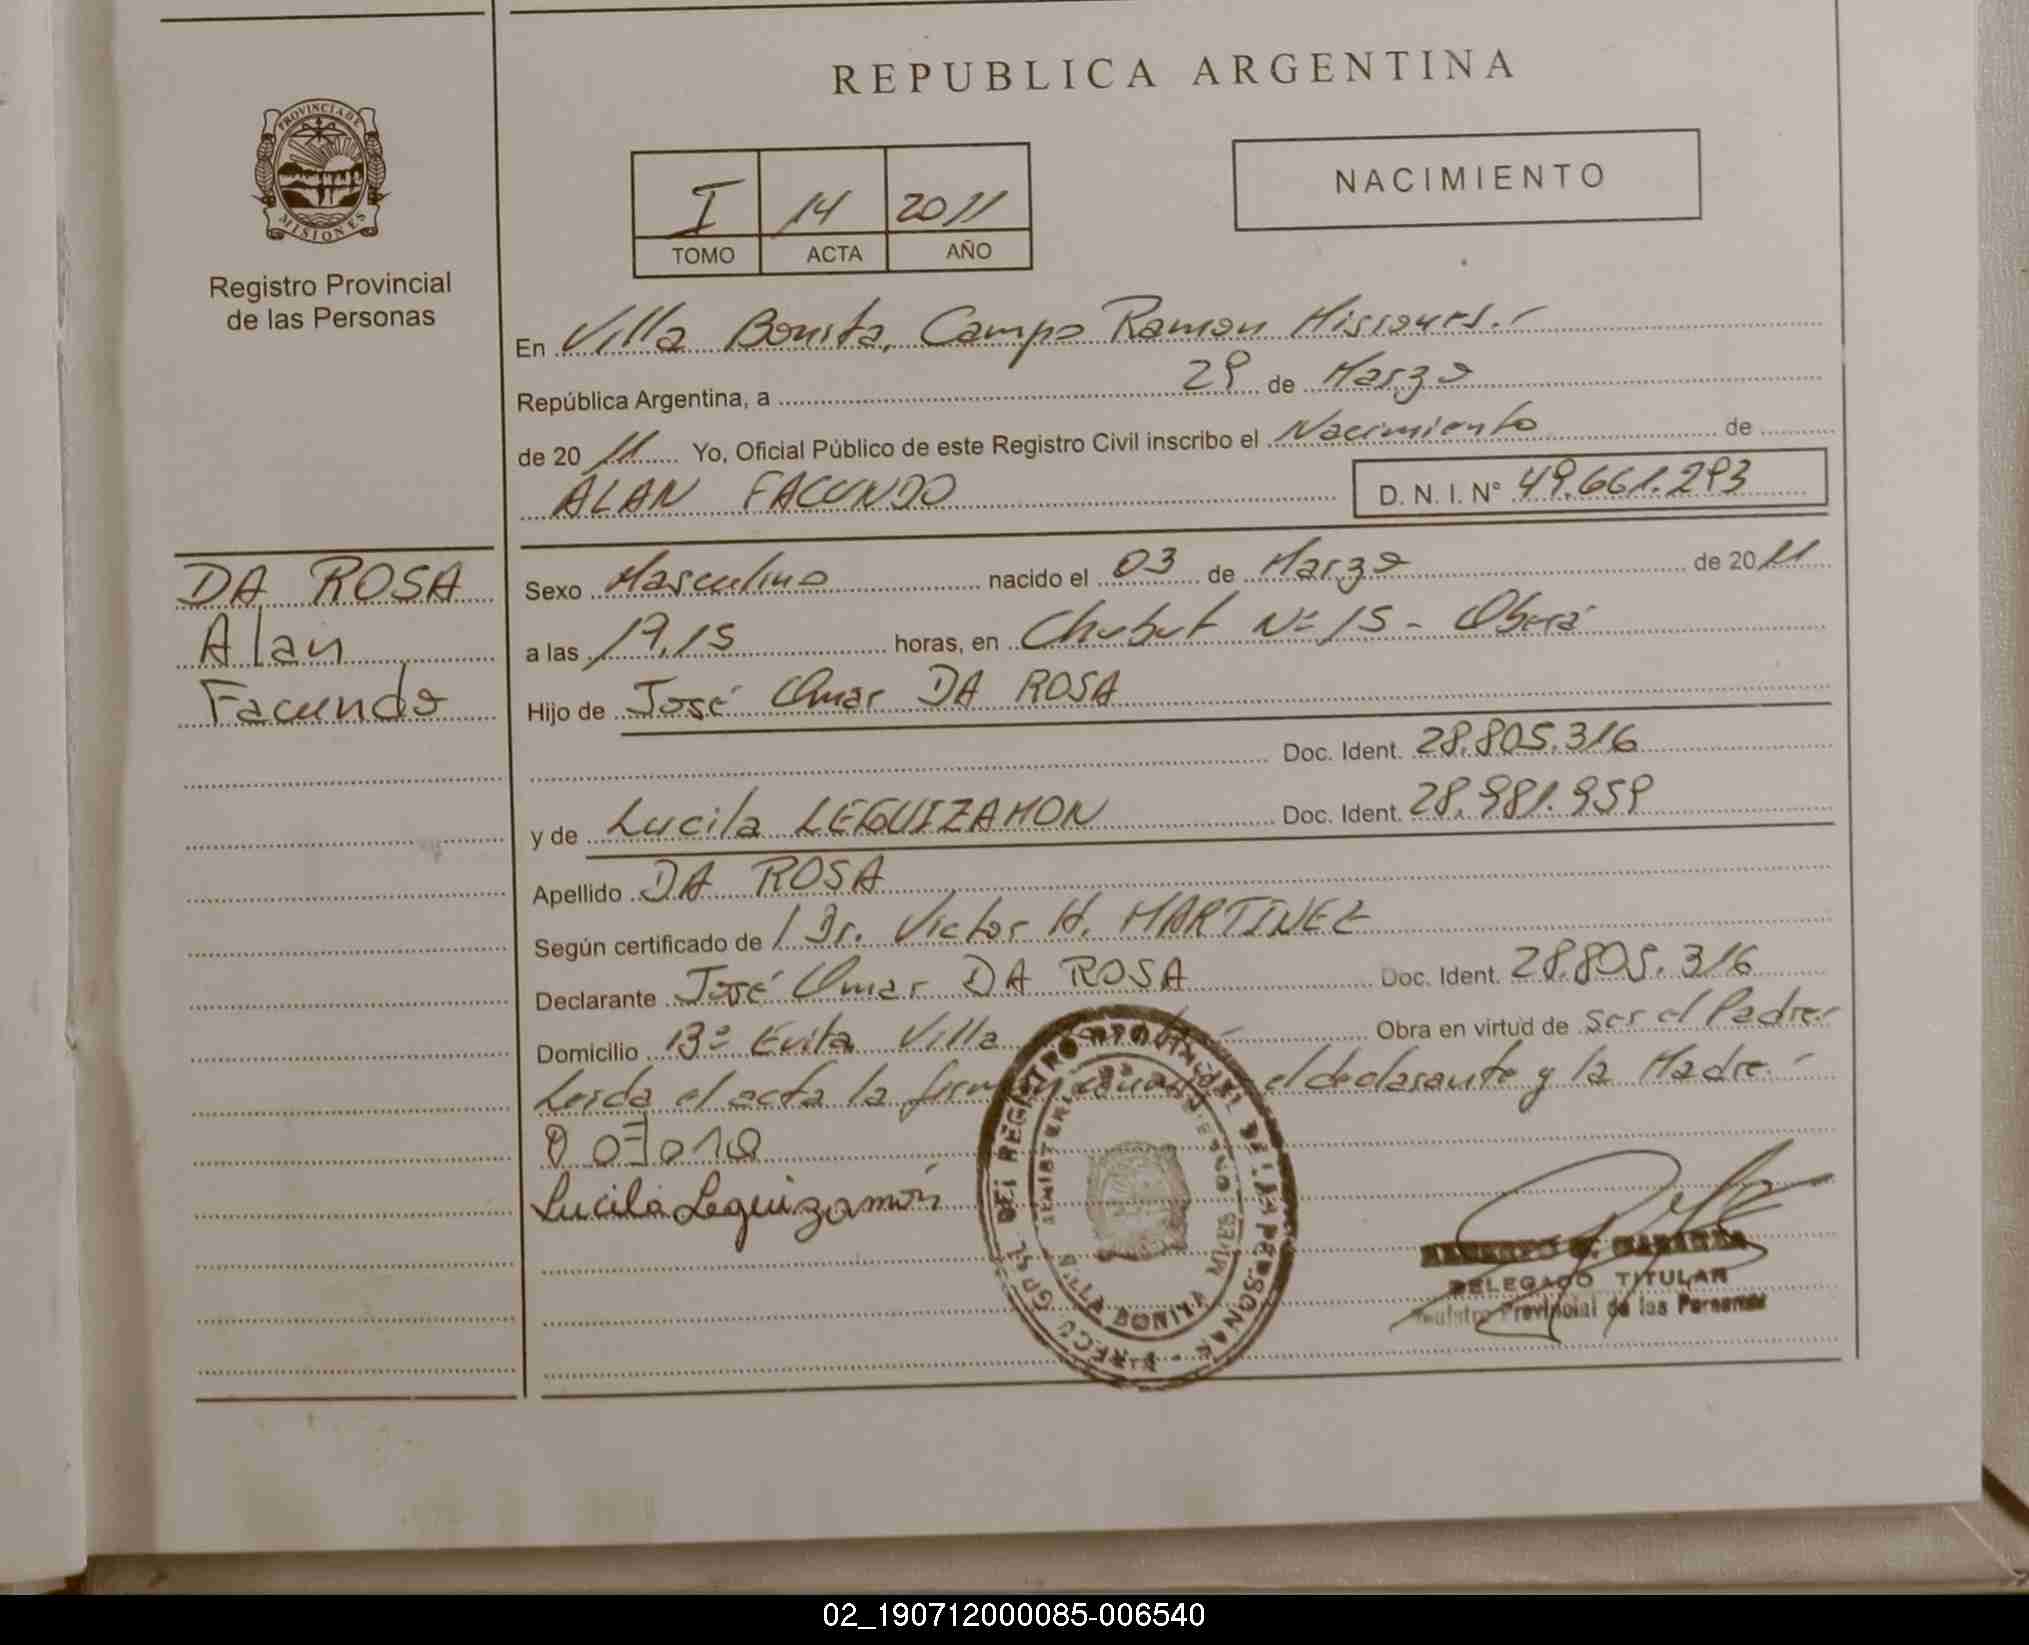 REPUBLICA ARGENTINA
PROVINCIA DE
MISIONES
Registro Provincial
de las Personas
I 14 2011
TOMO ACTA AÑO
NACIMIENTO
En Villa Bonita, Campo Ramon Misiones.-
República Argentina, a 29 de Marzo
de 2011 Yo, Oficial Público de este Registro Civil inscribo el Nacimiento de
ALAN FACUNDO D. N. I. N° 49.661.293
DA ROSA
Alan
Facundo
Sexo Masculino nacido el 03 de Marzo de 2011
a las 19,15 horas, en Chubut N° 15 - Oberá
Hijo de José Omar DA ROSA
Doc. Ident. 28.805.316
y de Lucila LEGUIZAMON Doc. Ident. 28.981.959
Apellido DA ROSA
Según certificado de Dr. Victor H. MARTINEZ
Declarante José Omar DA ROSA Doc. Ident. 28.805.316
Domicilio Bº Evita Villa Obra en virtud de ser el Padre.-
Leida el acta la el declarante y la Madre.-
Lucila Leguizamón
VILLA BONITA
DELEGADO TITULAR
Provincial de las Personas
02_190712000085-006540